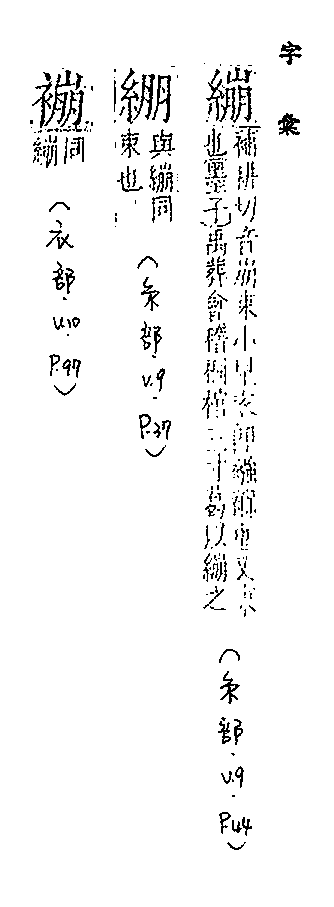 字彙
繃
補耕切音崩束小兒衣即繈褓也又束
也墨子禹葬會稽桐棺三寸葛以繃之
(糸部.V.9.P.44)
綳
與繃同
束也
(糸部.V.9.P.37)
䙖
同
繃
(衣部.V.10.P.97)